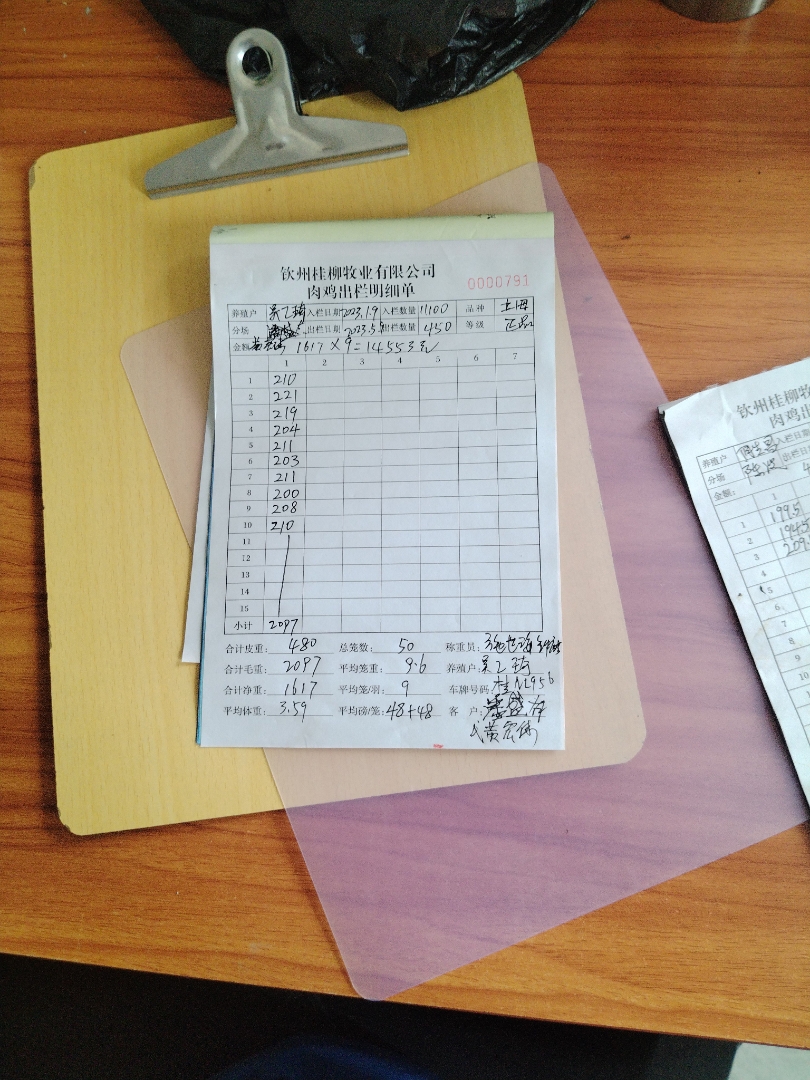 钦州桂柳牧业有限公司
肉鸡出栏明细单
0000791
养殖户 吴乙琦 入栏日期 2023.1.9 入栏数量 11100 品种 土海
分场 出栏日期 2023.5.5 出栏数量 450 等级 正品
金额: 1617×9=14553元
1 2 3 4 5 6 7
1 210
2 221
3 219
4 204
5 211
6 203
7 211
8 200
9 208
10 210
11
12
13
14
15
小计 2097
合计皮重: 480 总笼数: 50 称重员:
合计毛重: 2097 平均笼重: 9.6 养殖户: 吴乙琦
合计净重: 1617 平均笼/羽: 9 车牌号码: 桂NL956
平均体重: 3.59 平均磅/笼: 48+48 客户:
钦州桂柳牧
肉鸡出
养殖户 入栏日期
分场 出栏日
金额:
1
1 199.5
2 194.5
3 209.
4
5
6
7
8
9
10